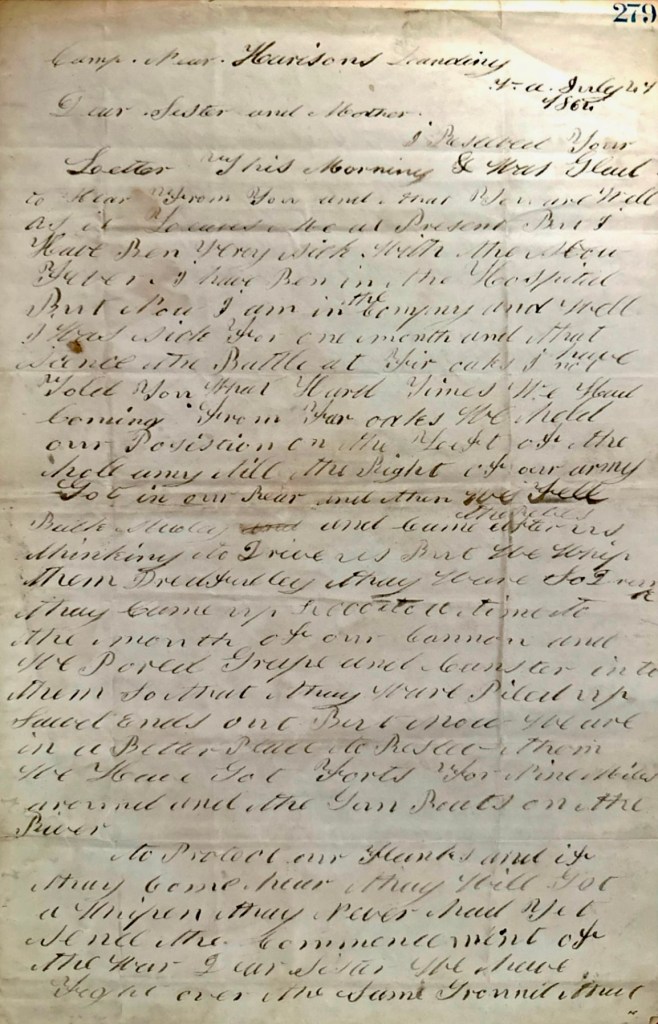 279
Camp Near Harisons Landing
Va July 24
1862
Dear Sister and Mother
I Reseved Your
Letter This Morning & Was Glad
to Hear From You and that You are Well
as it Leaves Me at Present But I
Have Ben Very sick With the Slow
Fever I have Ben in the Hospital
But Now I am in the Compny and Well
I Was sick For one month and that
scence the Battle at Fir oaks I have not
Told You What Hard Times We Had
Coming From Far oaks We held
our Posision on the Left of the
hole army till the Right of our army
Got in our Rear and then We Fell
Back and Came after us
thinking to Drive us But We Whip
them Dredfulley thay Ware So Drunk
thay Came up to the
mouth of our Cannon and
We Pored Grape and Canster into
them So that thay Ware Piled up
Ends out But Now We are
in a Better Place to Resec them
We Have Got Forts For Nine Miles
around and the Gun Boats on the
River
to Protect our Flanks and if
thay Come hear thay Will Got
a Whipen thay Never had Yet
sence the Commencement of
the War Dear Sister We have
Fight over the Same Ground that